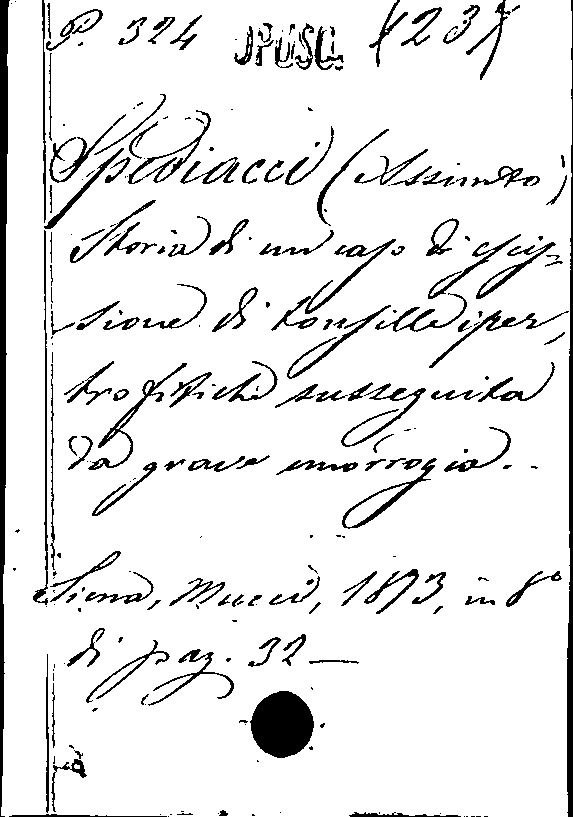 P. 324 OPUSC. (23)
Spediacci (Assunto)
Storia di un caso di escis=
sione di tonsille iper,
trofitiche susseguita
da grave emorrogia.
Siena, Mucci, 1873, in 8°
di pag. 32—